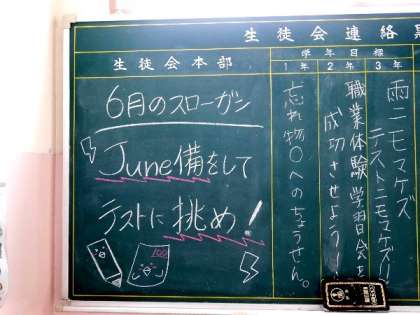 生徒会連絡
生徒会本部
6月のスローガン
June備をして
テストに挑め!
100
学年目標
1年
忘れ物0へのちょうせん。
2年
職業体験学習会を
成功させよう!
3年
雨ニモマケズ
テストニモマケズ!!